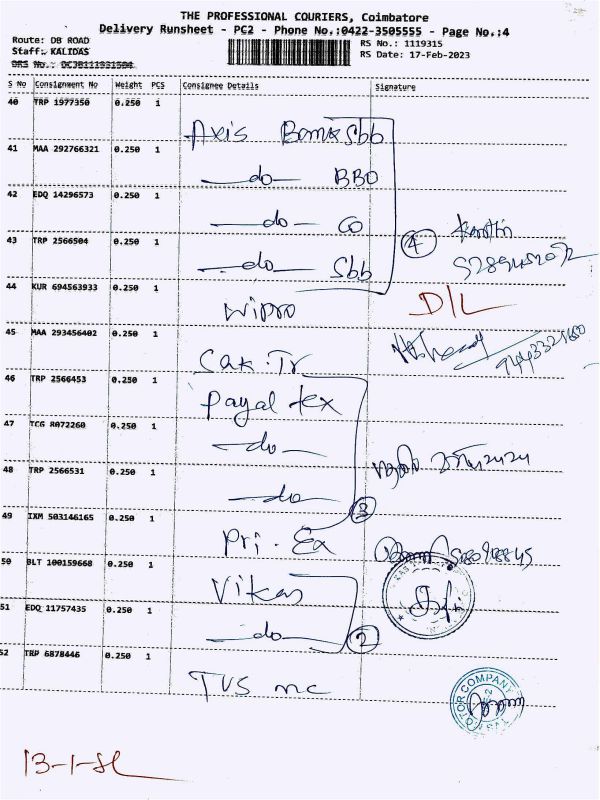 THE PROFESSIONAL COURIERS, Coimbatore
Delivery Runsheet - PC2 - Phone No.:0422-3505555 - Page No.:4
Route: DB ROAD
RS No.: 1119315
Staff: KALIDAS
RS Date: 17-Feb-2023
DRS No.:
S No Consignment No Weight PCS Consignee Details Signature
40 TRP 1977350 0.250 1
Axis Bank Sbb
41 MAA 292766321 0.250 1
—do— BBO
42 EDQ 14296573 0.250 1
—do— CO
43 TRP 2566504 0.250 1
—do— Sbb
4
44 KUR 694563933 0.250 1
Wipro D/L
45 MAA 293456402 0.250 1
Cak. Tr
46 TRP 2566453 0.250 1
Payal tex
47 TCG 8072260 0.250 1
—do—
48 TRP 2566531 0.250 1
—do—
3
49 IXM 503146165 0.250 1
Pri. Ex
50 BLT 100159668 0.250 1
Vikas
51 EDQ 11757435 0.250 1
—do—
2
52 TRP 6878446 0.250 1
TVS mc
MOTOR COMPANY
13-1-